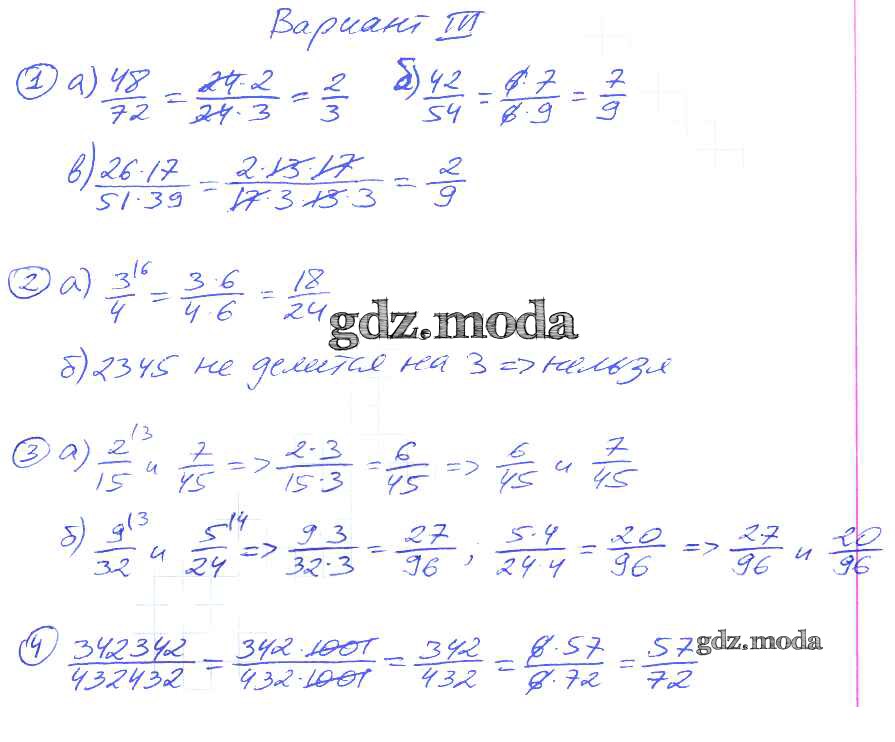 Вариант III
① а) 48/72 = 24·2/24·3 = 2/3 б) 42/54 = 6·7/6·9 = 7/9
в) 26·17/51·39 = 2·13·17/17·3·13·3 = 2/9
② а) 3/4 |6 = 3·6/4·6 = 18/24
gdz.moda
б) 2345 не делится на 3 => нельзя
③ а) 2/15 |3 и 7/45 => 2·3/15·3 = 6/45 => 6/45 и 7/45
б) 9/32 |3 и 5/24 |4 => 9·3/32·3 = 27/96 ; 5·4/24·4 = 20/96 => 27/96 и 20/96
④ 342342/432432 = 342·1001/432·1001 = 342/432 = 6·57/6·72 = 57/72
gdz.moda